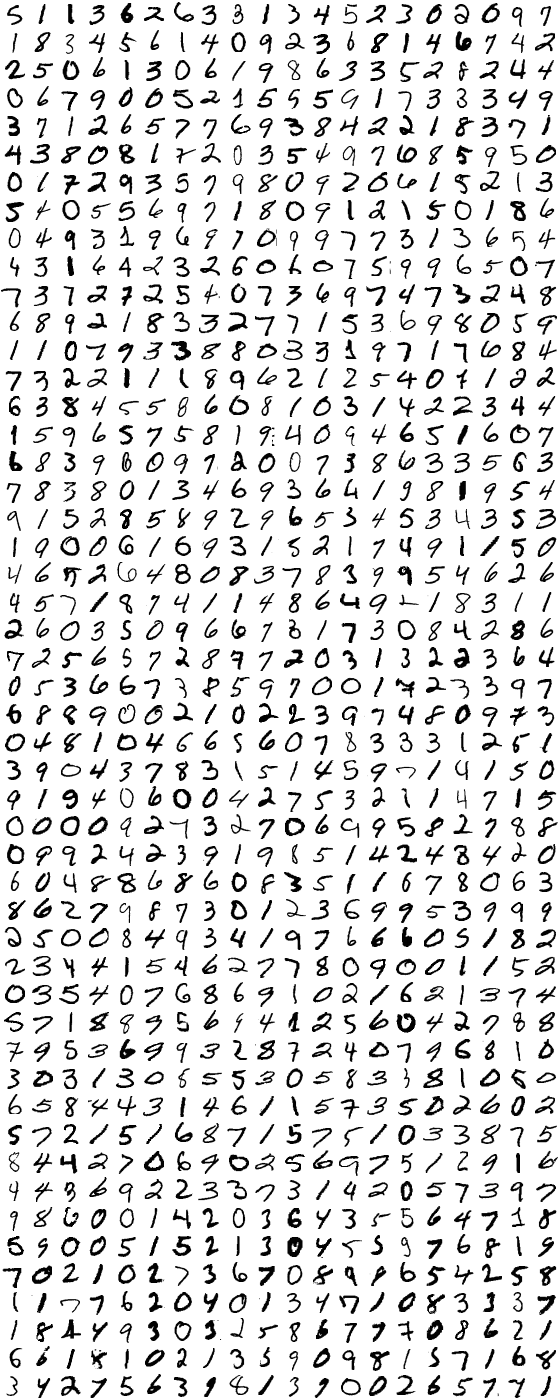 5 1 1 3 6 2 6 3 3 1 3 4 5 2 3 0 2 0 9 7
1 8 3 4 5 6 1 4 0 9 2 3 6 8 1 4 6 7 4 2
2 5 0 6 1 3 0 6 1 9 8 6 3 3 5 2 8 2 4 4
0 6 7 9 0 0 5 2 1 5 5 5 9 1 7 3 3 3 4 9
3 7 1 2 6 5 7 7 6 9 3 8 4 2 2 1 8 3 7 1
4 3 8 0 8 1 7 2 0 3 5 4 9 7 6 8 5 9 5 0
0 1 7 2 9 3 5 7 9 8 0 9 2 0 6 1 5 2 1 3
5 4 0 5 5 6 9 7 1 8 0 9 1 2 1 5 0 1 8 6
0 4 9 3 1 9 6 9 7 0 9 9 7 7 3 1 3 6 5 4
4 3 1 6 4 2 3 2 6 0 6 0 7 5 9 9 6 5 0 7
7 3 7 2 7 2 5 4 0 7 3 6 9 7 4 7 3 2 4 8
6 8 9 2 1 8 3 3 2 7 7 1 5 3 6 9 8 0 5 9
1 1 0 7 9 3 3 8 8 0 3 3 1 9 7 1 7 6 8 4
7 3 2 2 1 1 1 8 9 6 2 1 2 5 4 0 7 1 2 2
6 3 8 4 5 5 8 6 0 8 1 0 3 1 4 2 2 3 4 4
1 5 9 6 5 7 5 8 1 9 4 0 9 4 6 5 1 6 0 7
6 8 3 9 6 0 9 7 2 0 0 7 3 8 6 3 3 5 6 3
7 8 3 8 0 1 3 4 6 9 3 6 4 1 9 8 1 9 5 4
9 1 5 2 8 5 8 9 2 9 6 5 3 4 5 3 4 3 5 3
1 9 0 0 6 1 6 9 3 1 5 2 1 7 4 9 1 1 5 0
4 6 5 2 6 4 8 0 8 3 7 8 3 9 9 5 4 6 2 6
4 5 7 1 8 7 4 1 1 4 8 6 4 9 1 8 3 1 1
2 6 0 3 5 0 9 6 6 7 8 1 7 3 0 8 4 2 8 6
7 2 5 6 5 7 2 8 9 7 2 0 3 1 3 2 2 3 6 4
0 5 3 6 6 7 3 8 5 9 7 0 0 1 7 2 3 3 9 7
6 8 8 9 0 0 2 1 0 2 2 3 9 7 4 8 0 9 7 3
0 4 8 1 0 4 6 6 5 6 0 7 8 3 3 3 1 2 5 1
3 9 0 4 3 7 8 3 1 5 1 4 5 9 7 1 4 1 5 0
9 1 9 4 0 6 0 0 4 2 7 5 3 2 1 1 4 7 1 5
0 0 0 0 9 2 7 3 2 7 0 6 9 9 5 8 2 7 8 8
0 9 9 2 4 2 3 9 1 9 8 5 1 4 2 4 8 4 2 0
6 0 4 8 8 6 8 6 0 8 3 5 1 1 6 7 8 0 6 3
8 6 2 7 9 8 7 3 0 1 2 3 6 9 9 5 3 9 9 9
2 5 0 0 8 4 9 3 4 1 9 7 6 6 6 0 5 1 8 2
2 3 4 4 1 5 4 6 2 7 7 8 0 9 0 0 1 1 5 2
0 3 5 4 0 7 6 8 6 9 1 0 2 1 6 2 1 3 7 4
5 7 1 8 8 9 5 6 9 4 1 2 5 6 0 4 2 7 8 8
7 9 5 3 6 9 9 3 2 8 7 2 4 0 7 9 6 8 1 0
3 0 3 1 3 0 8 5 5 3 0 5 8 3 3 8 1 0 5 0
6 5 8 4 4 3 1 4 6 1 1 5 7 3 5 0 2 6 0 2
5 7 2 1 5 1 6 8 7 1 5 7 5 1 0 3 3 8 7 5
8 4 4 2 7 0 6 9 0 2 5 6 9 7 5 1 2 9 1 6
4 4 3 6 9 2 2 3 3 7 3 1 4 2 0 5 7 3 9 7
9 8 6 0 0 1 4 2 0 3 6 4 3 5 5 6 4 7 1 8
5 9 0 0 5 1 5 2 1 3 0 4 5 5 9 7 6 8 1 9
7 0 2 1 0 2 7 3 6 7 0 8 9 8 6 5 4 2 5 8
1 1 7 7 6 2 0 4 0 1 3 4 7 1 0 8 3 3 3 7
1 8 4 4 9 3 0 3 2 5 8 6 7 7 7 0 8 6 2 1
6 6 1 8 1 0 2 1 3 5 9 0 9 8 1 5 7 1 6 8
3 4 2 7 5 6 3 9 8 1 3 9 0 0 2 6 5 7 7 1